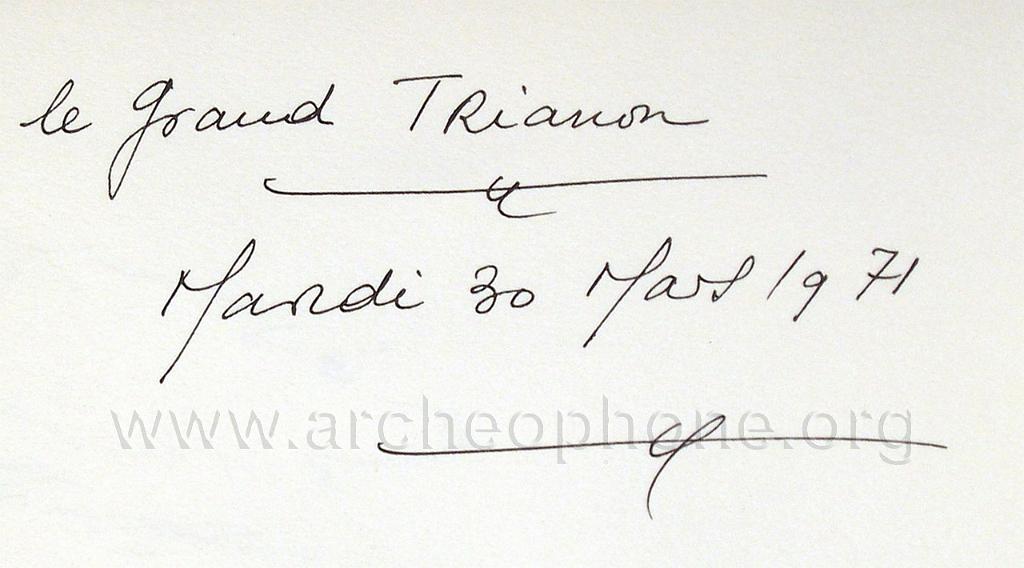 le Grand TRianon
Mardi 30 Mars 1971
www.archeophone.org